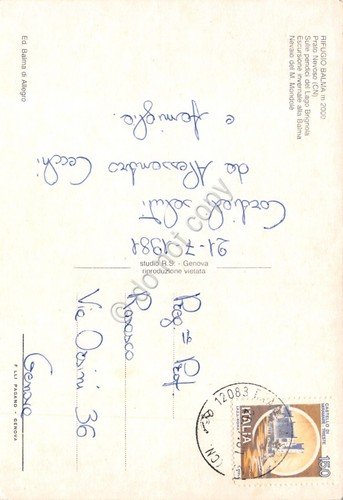 RIFUGIO BALMA m 2000
Prato Nevoso (CN)
Sulle pendici del Lago Brignola
Escursione invernale alla Balma
Nevaio del M. Mondolè
21-7-1981
Cordiali saluti
da Alessandro Cecchi
e famiglia.
Ed. Balma di Allegro
studio R.S. - Genova
riproduzione vietata
do not copy
CASTELLO DI
MIRAMARE TRIESTE
ITALIA
150
12083
(CN)
Via Orsini 36
Genova
F.LLI PAGANO - GENOVA